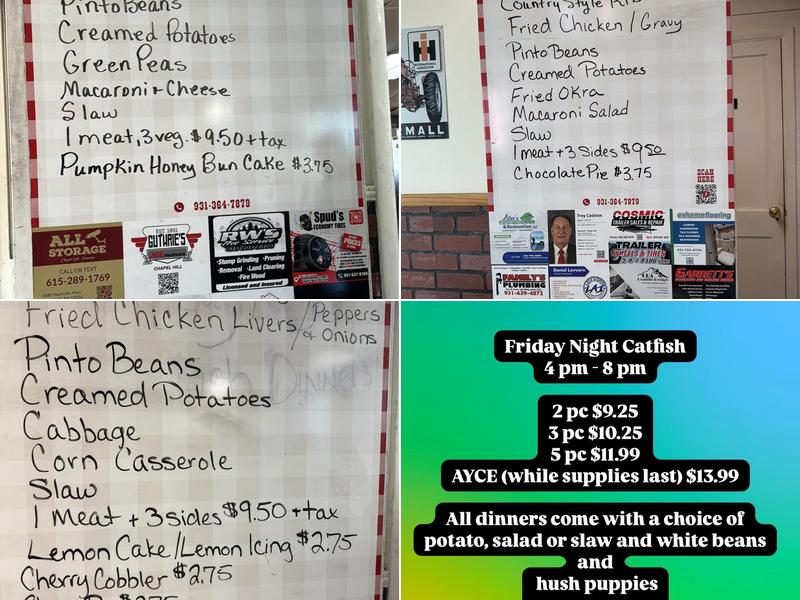 Pinto Beans
Creamed Potatoes
Green Peas
Macaroni + Cheese
Slaw
1 meat, 3 veg. $9.50 + tax
Pumpkin Honey Bun Cake $3.75
931-364-7879
ALL
STORAGE
CALL OR TEXT
615-289-1769
EST. 1951
GUTHRIE'S
CHAPEL HILL
RWS
Stump Grinding • Pruning
Removal • Land Clearing
Fire Wood
Licensed and Insured
Spud's
ECONOMY TIRES
Country Style
Fried Chicken / Gravy
Pinto Beans
Creamed Potatoes
Fried Okra
Macaroni Salad
Slaw
1 meat + 3 sides $9.50
Chocolate Pie $3.75
SCAN
HERE
931-364-7879
IH
INTERNATIONAL
HARVESTER
MALL
Troy Cashion
COSMIC
TRAILER SALES & REPAIR
TRAILER
WHEELS & TIRES
extremeflooring
FAMILY
PLUMBING
931-639-4872
Daniel Lavvorn
GARRETT'S
Fried Chicken Livers / Peppers
& Onions
Pinto Beans
Creamed Potatoes
Cabbage
Corn Casserole
Slaw
1 Meat + 3 sides $9.50 + tax
Lemon Cake / Lemon Icing $2.75
Cherry Cobbler $2.75
Friday Night Catfish
4 pm - 8 pm
2 pc $9.25
3 pc $10.25
5 pc $11.99
AYCE (while supplies last) $13.99
All dinners come with a choice of
potato, salad or slaw and white beans
and
hush puppies